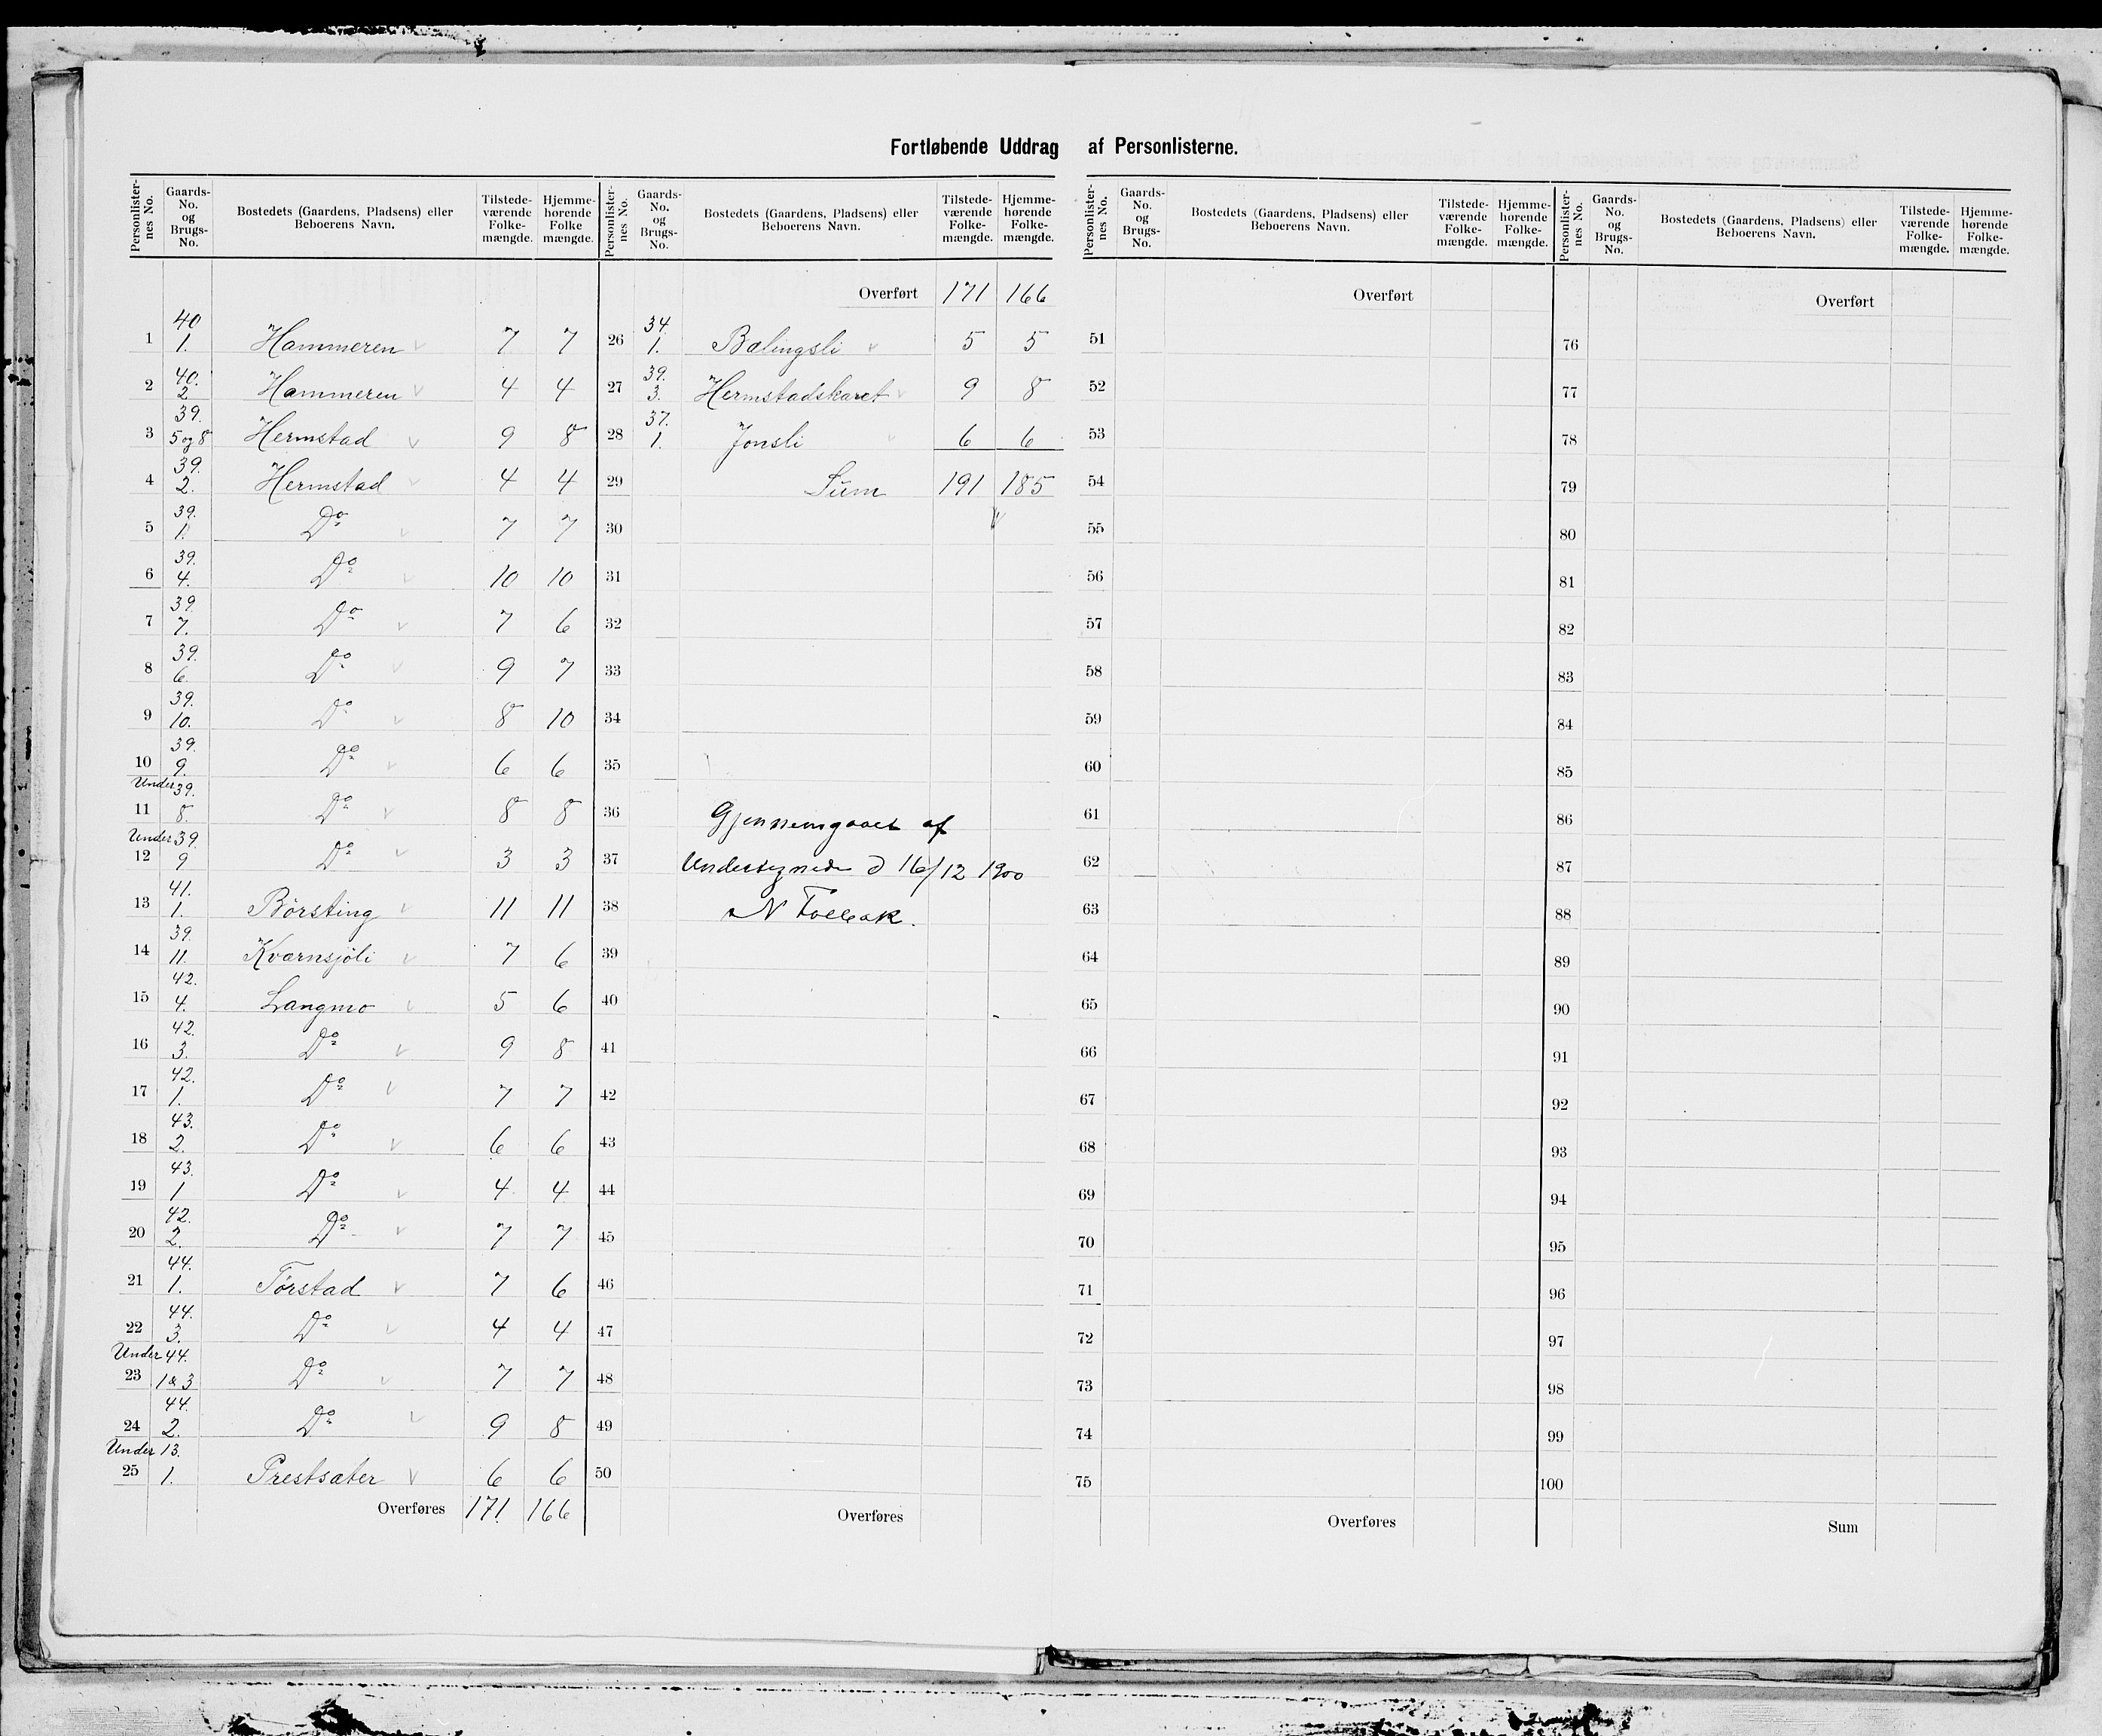 Fortløbende Uddrag af Personlisterne.
Personlister-nes No. | Gaards-No. og Brugs-No. | Bostedets (Gaardens, Pladsens) eller Beboerens Navn. | Tilstede-værende Folke-mængde. | Hjemme-hørende Folke mængde.
1 | 40. 1. | Hammeren | 7 | 7
2 | 40. 2 | Hammeren | 4 | 4
3 | 39. 5 og 8 | Hermstad | 9 | 8
4 | 39. 2. | Hermstad | 4 | 4
5 | 39. 1. | Do | 7 | 7
6 | 39. 4. | Do | 10 | 10
7 | 39. 7. | Do | 7 | 6
8 | 39. 6. | Do | 9 | 7
9 | 39. 10. | Do | 8 | 10
10 | 39. 9. | Do | 6 | 6
11 | Under 39. 8. | Do | 8 | 8
12 | Under 39. 9 | Do | 3 | 3
13 | 41. 1. | Börsting | 11 | 11
14 | 39. 11. | Kværnsjöli | 7 | 6
15 | 42. 4. | Langmo | 5 | 6
16 | 42. 3. | Do | 9 | 8
17 | 42. 1. | Do | 7 | 7
18 | 43. 2. | Do | 6 | 6
19 | 43. 1 | Do | 4 | 4
20 | 42. 2. | Do | 7 | 7
21 | 44. 1. | Törstad | 7 | 6
22 | 44. 3. | Do | 4 | 4
23 | Under 44. 1 & 3 | Do | 7 | 7
24 | 44. 2. | Do | 9 | 8
25 | Under 13. 1. | Prestsæter | 6 | 6
Overføres 171. 166
Personlister-nes No. | Gaards-No. og Brugs-No. | Bostedets (Gaardens, Pladsens) eller Beboerens Navn. | Tilstede-værende Folke-mængde. | Hjemme-hørende Folke-mængde.
Overført 171 166
26 | 34. 1. | Bælingsli | 5 | 5
27 | 39. 3. | Hermstadskaret | 9 | 8
28 | 37. 1. | Jonsli | 6 | 6
29 | Sum | 191 | 185
30
31
32
33
34
35
36 Gjennemgaaet af
37 Undertegnede d 16/12 1900
38 N
39
40
41
42
43
44
45
46
47
48
49
50
Overføres
Personlister-nes No. | Gaards-No. og Brugs-No. | Bostedets (Gaardens, Pladsens) eller Beboerens Navn. | Tilstede-værende Folke-mængde. | Hjemme-hørende Folke-mængde.
Overført
51
52
53
54
55
56
57
58
59
60
61
62
63
64
65
66
67
68
69
70
71
72
73
74
75
Overføres
Personlister-nes No. | Gaards-No. og Brugs-No. | Bostedets (Gaardens, Pladsens) eller Beboerens Navn. | Tilstede-værende Folke-mængde. | Hjemme-hørende Folke-mængde.
Overført
76
77
78
79
80
81
82
83
84
85
86
87
88
89
90
91
92
93
94
95
96
97
98
99
100
Sum